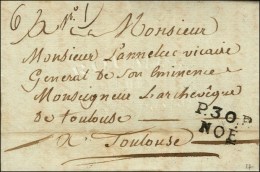 A Monsieur
Monsieur Lannelue vicaire
General de Son Eminence
Monseigneur Larchevêque
de toulouse
P.30.P
NOÉ
a Toulouse